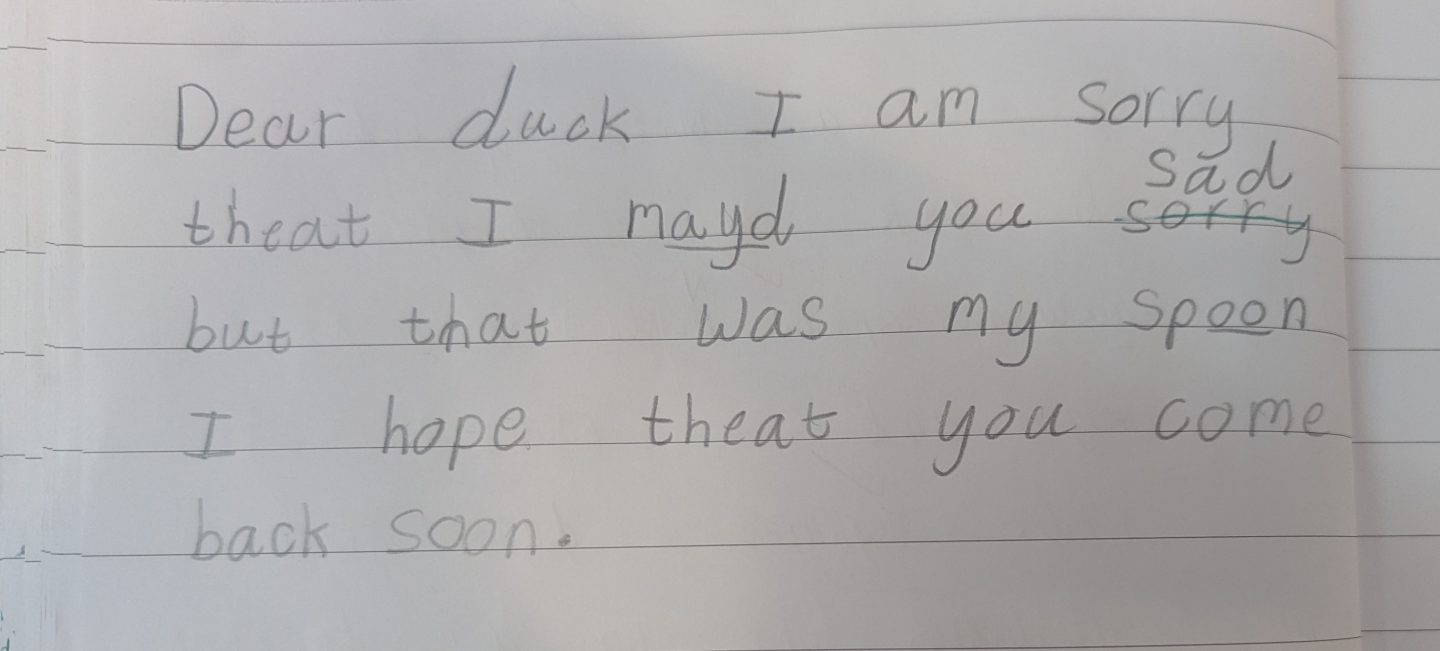 Dear duck I am sorry
sad
theat I mayd you sorry
but that was my spoon
I hope theat you come
back soon.